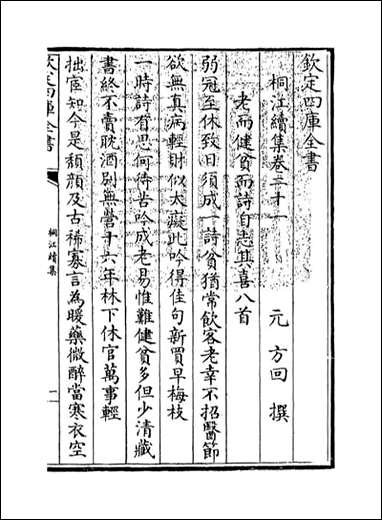 欽定四庫全書
桐江續集卷二十一
元 方回 撰
老而健貧而詩自志其喜八首
弱冠至休致日須成一詩貧猶常飲客老幸不招醫節
欲無真病輕財似太癡此吟得佳句新買早梅枝
一時詩有思何待苦吟成老易惟難健貧多但少清藏
書終不賣耽酒別無營十六年林下休官萬事輕
拙宦知今是頽顔及古稀寡言為暖藥微醉當寒衣空
欽定四庫全書
桐江續集